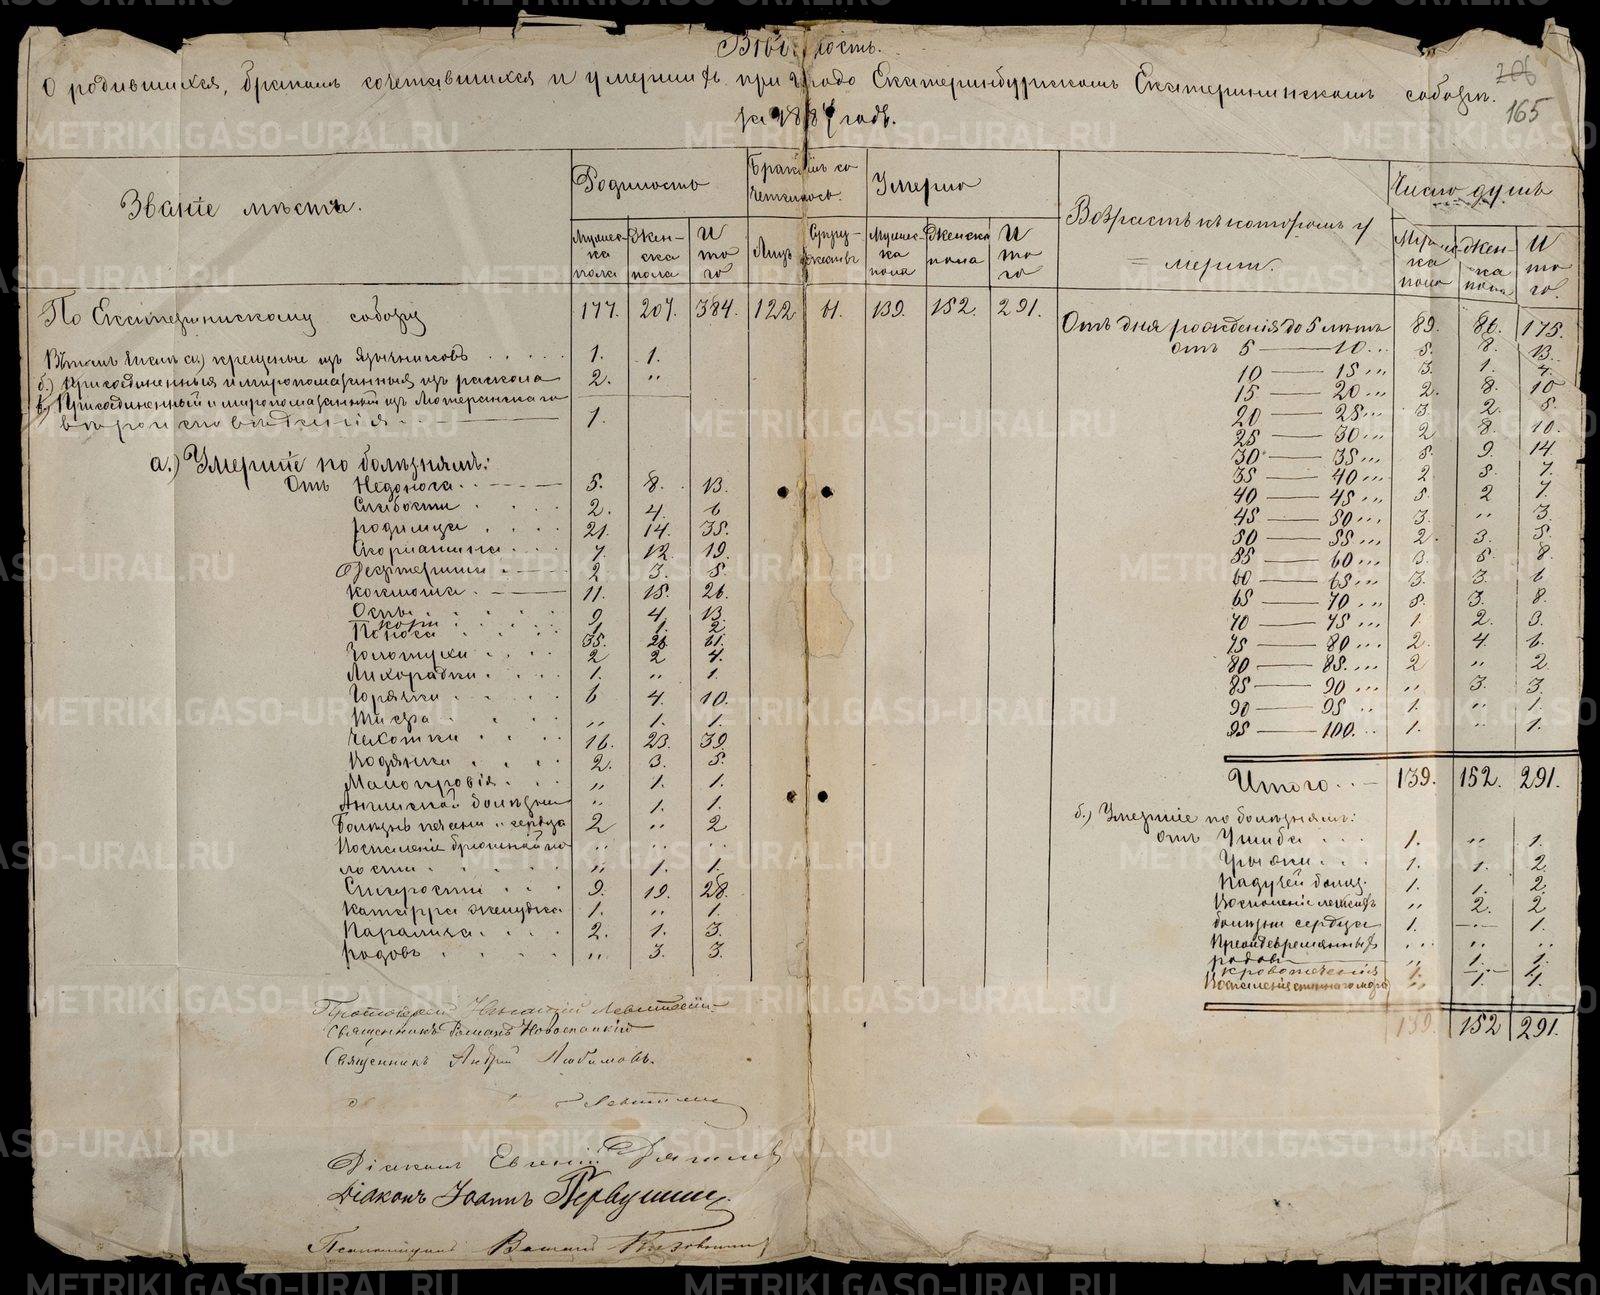 О родившихся, бракомъ сочетавшихся и умершихъ при градо Екатеринбургскомъ Екатерининскомъ соборѣ.
за 1887 годъ.
165
Званіе мѣстъ.
Родилось
Бракомъ со
четалось.
Умерло
Возрастъ въ которомъ у
мерли.
Число душъ
Мужес-
ка
пола
Жен-
ска
пола
И
то
го
Лицъ
Супру-
жествъ
Мужес-
ка
пола
Женска
пола
И
то
го
Жен-
ска
пола
И
то
го.
По Екатерининскому собору 177. 207. 384. 122 61. 139. 152. 291.
Въ томъ числѣ а) крещеные изъ язычниковъ 1. 1.
б.) Присоединенныя и миропомазанныя изъ раскола 2. "
в.) Присоединенный и миропомазанный изъ Лютеранскаго
вѣроисповѣданія. 1.
а.) Умершіе по болѣзнямъ:
Отъ Недоноса 5. 8. 13.
Слабости 2. 4. 6
родимца 21. 14. 35.
Скарлатины 7. 12. 19.
Дифтерита 2 3. 5.
коклюша 11. 15. 26.
Оспы 9 4. 13.
Кори 1. 1. 2
Поноса 35. 26. 61.
Золотухи 2 2 4.
Лихорадки 1. " 1.
Горячки 6 4. 10.
Тифа " 1. 1.
Чахотки 16. 23. 39.
Водянки 2. 3. 5.
Малокровія " 1. 1.
Англиской болѣзни " 1. 1.
Болѣзнь печени и сердца 2 " 2
Воспаленіе брюшной по
лости " 1. 1.
Старости 9. 19. 28.
Катарра желудка 1. " 1.
Паралича 2. 1. 3.
родовъ " 3. 3.
Отъ дня рожденія до 5 лѣтъ 89. 86. 175.
отъ 5 — 10 5. 8. 13.
10 — 15 3. 1. 4.
15 — 20 2. 8. 10
20 — 25 3. 2. 5.
25 — 30 2 8. 10.
30 — 35 5. 9. 14.
35 — 40 2 5. 7.
40 — 45 5. 2 7.
45 — 50 3. " 3.
50 — 55 2. 3. 5.
55 — 60 3. 5. 8.
60 — 65 3. 3. 6
65 — 70 5. 3. 8.
70 — 75 1. 2. 3.
75 — 80 2. 4. 6.
80 — 85 2 " 2.
85 — 90 " 3. 3.
90 — 95 1. " 1.
95 — 100. 1. " 1.
Итого 139. 152. 291.
б.) Умершіе по болѣзнямъ:
отъ Ушиба 1. " 1.
Грыжи 1. 1. 2.
Падучей болѣз. 1. 1. 2.
Воспаленія легкихъ " 2. 2
болѣзни сердца 1. " 1.
Преждевременныхъ
родовъ " 1. 1.
кровотеченія 1. " 1.
Воспаленія спиннаго мозга " 1. 1.
139. 152 291.
Протоіерей Левитскій
Священникъ Романъ Новоспаскій
Священникъ Андрей Любимовъ.
Діаконъ Евгеній
Діаконъ Іоаннъ Первушинъ.
Псаломщикъ
METRIKI.GASO-URAL.RU